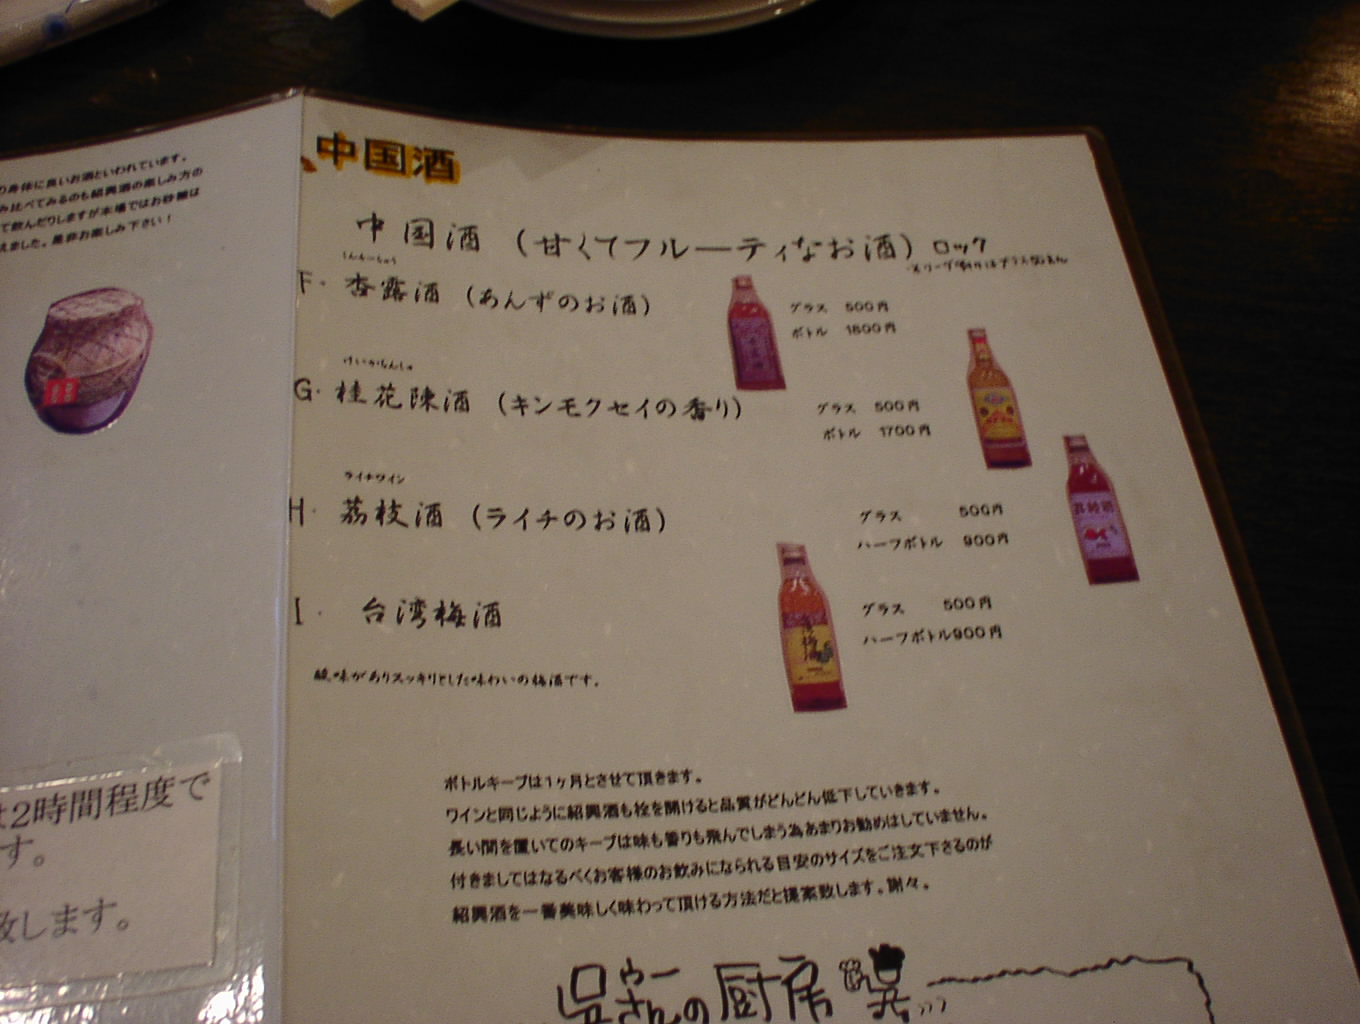 り身体に良いお酒といわれています。
み比べてみるのも紹興酒の楽しみ方の
て飲んだりしますが本場ではお砂糖は
えました。是非お楽しみ下さい！
は2時間程度で
す。
致します。
中国酒
中国酒（甘くてフルーティなお酒）ロック
F・杏露酒（あんずのお酒）
グラス 500円
ボトル 1800円
けいかちんしゅ
G・桂花陳酒（キンモクセイの香り）
グラス 500円
ボトル 1700円
ライチワイン
H・茘枝酒（ライチのお酒）
グラス 500円
ハーフボトル 900円
I・台湾梅酒
グラス 500円
ハーフボトル900円
酸味がありスッキリとした味わいの梅酒です。
ボトルキープは1ヶ月とさせて頂きます。
ワインと同じように紹興酒も栓を開けると品質がどんどん低下していきます。
長い間を置いてのキープは味も香りも飛んでしまう為あまりお勧めはしていません。
付きましてはなるべくお客様のお飲みになられる目安のサイズをご注文下さるのが
紹興酒を一番美味しく味わって頂ける方法だと提案致します。謝々。
ウー
呉さんの厨房